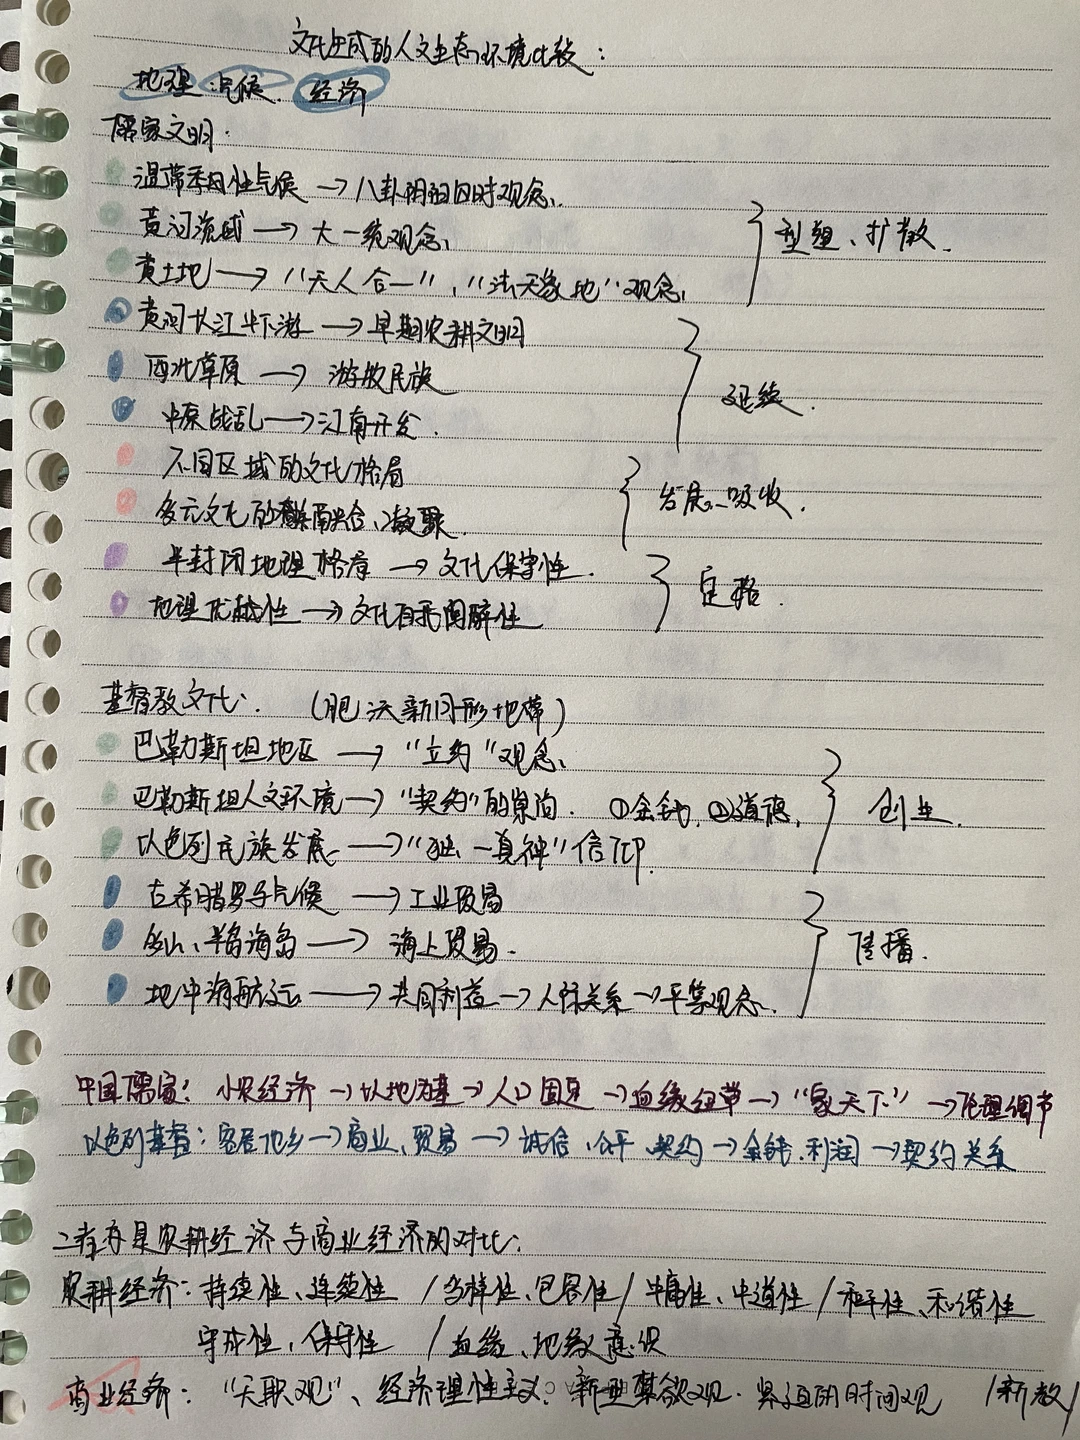 文化生成的人文生态环境比较：
地理、气候、经济
儒家文明：
温带季风性气候 → 八卦阴阳四时观念、
黄河流域 → 大一统观念、
型塑、扩散.
黄土地 → “天人合一”，“法天象地”观念、
黄河长江中下游 → 早期农耕文明
西北草原 → 游牧民族
延续.
中原战乱 → 江南开发.
不同区域的文化格局
多元文化的融合、凝聚.
发展、吸收.
半封闭地理格局 → 文化保守性.
定格.
地理优越性 → 文化自我陶醉性
基督教文化： （肥沃新月形地带）
巴勒斯坦地区 → “立约”观念、
巴勒斯坦人文环境 → “契约”的崇尚. ①金钱, ②道德,
创生.
以色列民族发展 → “独一真神”信仰.
古希腊罗马气候 → 工业贸易
多山、半岛海岛 → 海上贸易.
传播.
地中海航运 → 共同利益 → 人际关系 → 平等观念、
中国儒家：小农经济 → 以地为基 → 人口固定 → 血缘纽带 → “家天下” → 伦理调节
以色列基督：客居他乡 → 商业、贸易 → 诚信、公平、契约 → 金钱、利润 → 契约关系
二者亦是农耕经济与商业经济的对比：
农耕经济：持续性、连续性 / 多样性、包容性 / 中庸性、中道性 / 和平性、和谐性
守成性、保守性 / 血缘、地缘意识
商业经济：“天职观”、经济理性主义、新型禁欲观. 紧迫的时间观 /新教/